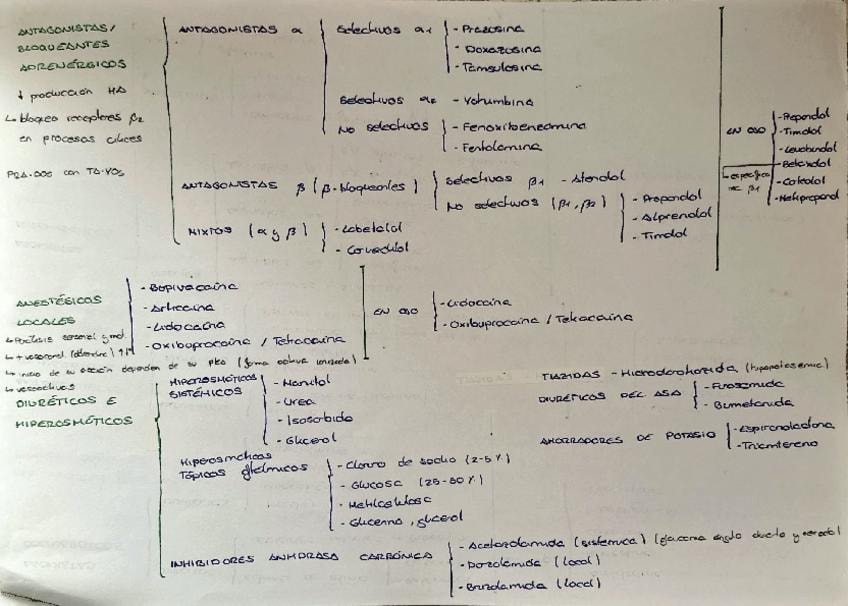 ANTAGONISTAS/
BLOQUEANTES
ADRENÉRGICOS
↓ producción HA
↳ bloqueo receptores β2
en procesos ciliares
ANTAGONISTAS α
Selectivos α1
- Prazosina
- Doxazosina
- Tamsulosina
Selectivos α2 - Yohumbina
No selectivos
- Fenoxibenzamina
- Fentolamina
ANTAGONISTAS β (β-bloqueantes)
Selectivos β1 - Atenolol
No selectivos (β1, β2)
- Propanolol
- Alprenolol
- Timolol
MIXTOS (α y β)
- Labetalol
- Carvedilol
EN OJO
- Propanolol
- Timolol
- Levobunolol
- Betaxolol
→ específico rec β1
- Carteolol
- Metipranolol
ANESTÉSICOS
LOCALES
↳ Parálisis sensorial y mot.
↳ inicio de su acción dependen de su pka (forma activa ionizada)
- Bupivacaína
- Articaína
- Lidocaína
- Oxibuprocaína / Tetracaína
EN OJO
- Lidocaína
- Oxibuprocaína / Tetracaína
DIURÉTICOS E
HIPEROSMÓTICOS
HIPEROSMÓTICOS
SISTÉMICOS
- Manitol
- Urea
- Isosorbida
- Glicerol
Hiperosmóticos
Tópicos oftálmicos
- Cloruro de sodio (2-5%)
- Glucosa (25-50%)
- Metilcelulosa
- Glicerina, glicerol
INHIBIDORES ANHIDRASA CARBÓNICA
- Acetazolamida (sistémica) (glaucoma ángulo abierto y cerrado)
- Dorzolamida (local)
- Brinzolamida (local)
TIAZIDAS - Hidroclorotiazida (hipopotasemia)
DIURÉTICOS DEL ASA
- Furosemida
- Bumetanida
AHORRADORES DE POTASIO
- Espironolactona
- Triamtereno